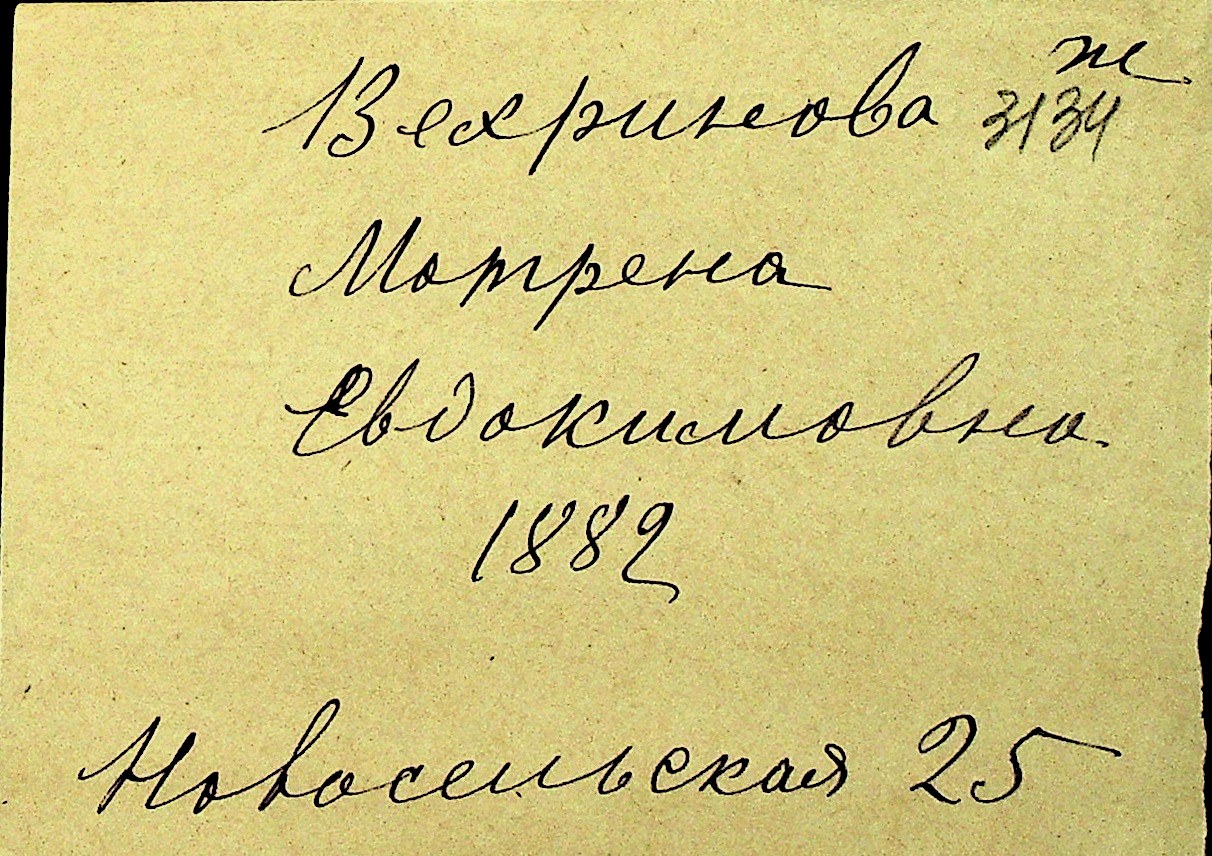 Вехринова ж
3134
Мотрена
Евдокимовна
1882
Новосельская 25